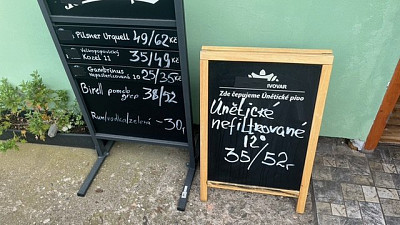 Pilsner Urquell 49/62Kč
Velkopopovický
Kozel 11 35/49 Kč
Gambrinus
Nepasterizovaná 10 25/35Kč
Birell pomelo
grep 38/52
Rum/vodka/zelená -30,-
PIVOVAR
Zde čepujeme Únětické pivo
Únětické
nefiltrované
12°
35/52,-